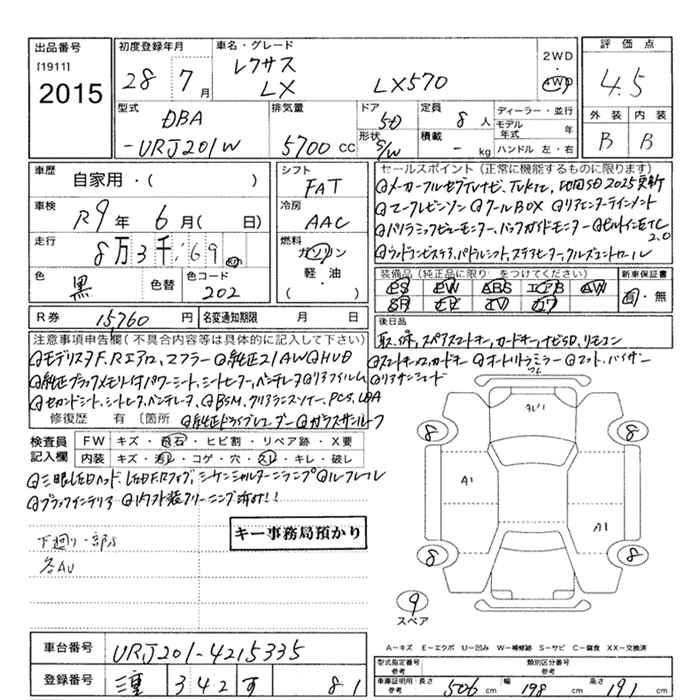 出品番号
[1911]
2015
初度登録年月
28 7月
車名・グレード
レクサス
LX LX570
2WD
4WD
評価点
4.5
外装 内装
B B
型式
DBA
-URJ201W
排気量
5700 CC
ドア
5D
形状
S/W
定員
8 人
積載
- kg
ディーラー・並行
モデル年式 年
ハンドル 左・右
車歴
自家用・( )
車検
R9年 6月( 日)
走行
8万3千169
色
黒
色替
色コード
202
シフト
FAT
冷房
AAC
燃料
ガソリン
軽・油
( )
セールスポイント (正常に機能するものに限ります)
◎メーカーフルセグTVナビ、TVKIT、地図SD2025更新
◎マークレビンソン ◎クールBOX ◎リアエンターテイメント
◎パノラミックビューモニター、バックガイドモニター ◎ビルトインETC2.0
◎ウッドコンビステア、パドルシフト、ステアヒーター、クルーズコントロール
装備品 (純正品に限り○をつけてください)
PS PW ABS エアB AW
SR 革 TV ナビ
新車保証書
有・無
R券 15,760 円
名変通知期限 月 日
後日品
取、保、スペアスマートキー、カードキー、ナビSD、リモコン
注意事項申告欄 (不具合内容等は具体的に記入して下さい)
◎モデリスタF.Rエアロ、マフラー ◎純正21AW ◎HUD
◎スマートキー2、カードキー ◎オートリトラミラー ◎マット、バイザー
◎純正ブラックメモリー付パワーシート、シートヒーター、ベンチレータ ◎リアフィルム
◎リアサンシェード
◎セカンドシート、シートヒーター、ベンチレータ、◎BSM、クリアランスソナー、PCS、LDA
修復歴 有 〔箇所 ◎純正ドライブレコーダー ◎ガラスサンルーフ
検査員記入欄
FW キズ・飛石・ヒビ割・リペア跡・X要
内装 キズ・汚れ・コゲ・穴・スレ・キレ・破レ
◎三眼LEDヘッド、LEDF.Rフォグ、シーケンシャルターンランプ ◎ルーフレール
◎ブラックインテリア ◎内外装クリーニング済み!!
下廻り一部S
各AU
キー事務局預かり
AU1
8 8
A1
A1
8 8
9
スペア
A-キズ E-エクボ U-凹み W-補修跡 S-サビ C-腐食 XX-交換済
車台番号
URJ201-4215335
登録番号
三重 342 す 81
型式指定番号
参考
類別区分番号
参考
車庫証明用
参考
長さ 506 cm
幅 198 cm
高さ 191 cm